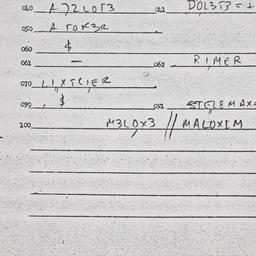 040 A72LOT3 041 DOL3T3=+
050 A TOK3R
060 $
061 – 062 RIMER
070 LIXTCIER
090 , $ 091 STELEMAX=
100 M3LOX3 // MALOXIM